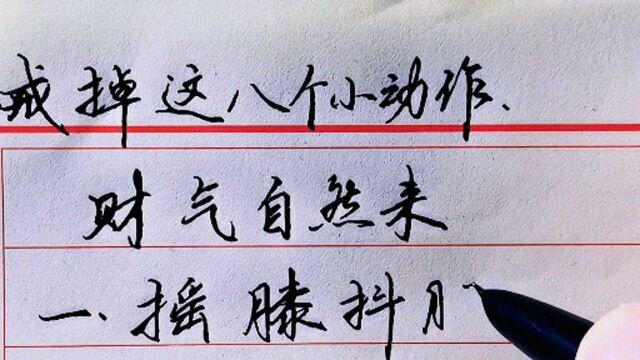 戒掉这八个小动作、
财气自然来
一、摇膝抖